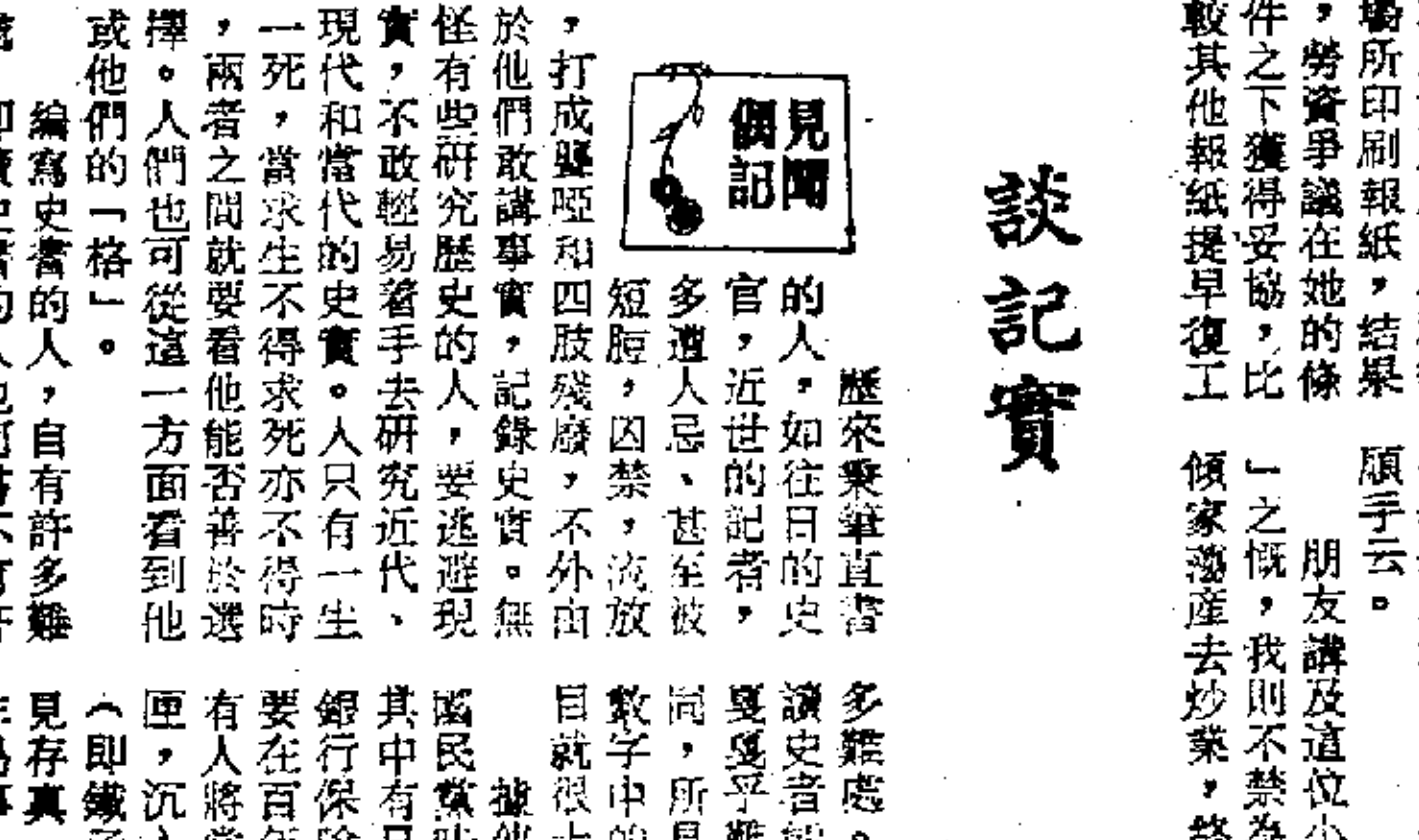 所印刷報紙，結果
，勞資爭議在她的條
件之下獲得妥協，比
較其他報紙提早復工
願手云。
朋友講及這位小
」之慨，我則不禁為
傾家蕩產去炒業，
談記實
見聞
偶記
歷來秉筆直書
的人，如往日的史
官，近世的記者，
多遭人忌、甚至被
短脰，囚禁，流放
，打成聾啞和四肢殘廢，不外由
於他們敢講事實，記錄史實。無
怪有些研究歷史的人，要逃避現
實，不敢輕易着手去研究近代、
現代和當代的史實。人只有一生
一死，當求生不得求死亦不得時
，兩者之間就要看他能否善於選
擇。人們也可從這一方面看到他
或他們的「格」。
編寫史書的人，自有許多難
多難處。
讀史者
戛戛乎難
同，所見
數字中的
目就很
據他
國民黨時
其中有
銀行保險
要在百年
有人將
匣，沉
（即鐵
見存真